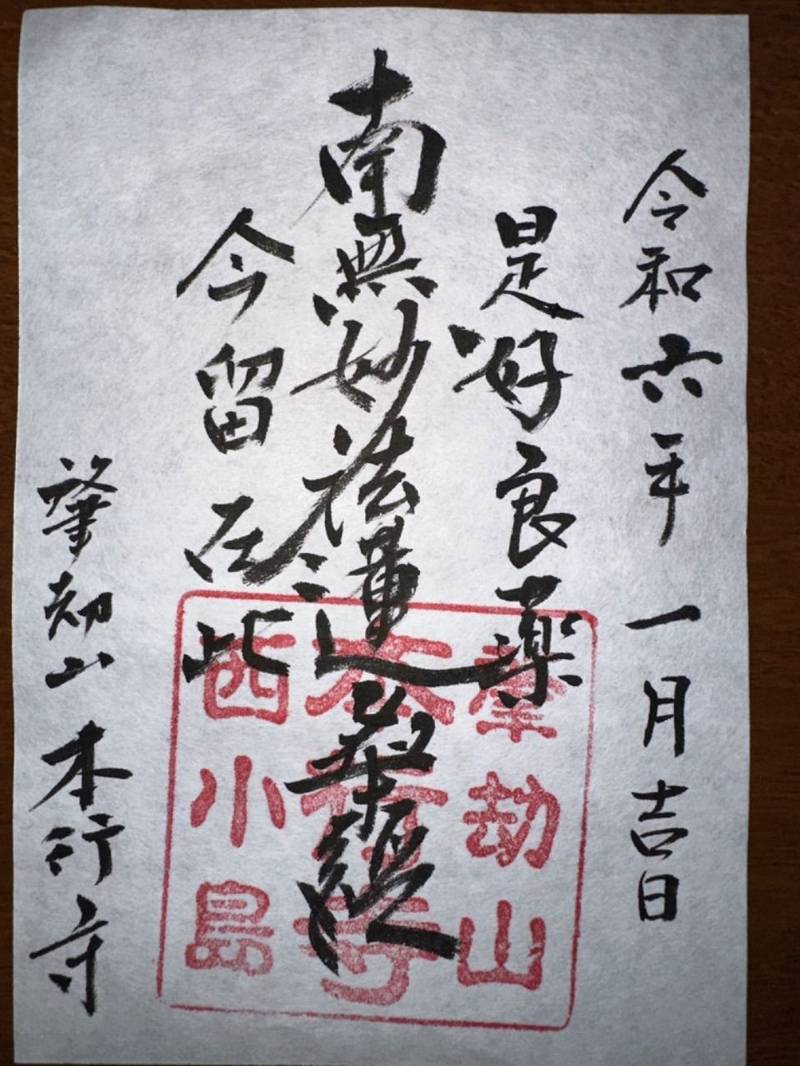 令和六年 一月吉日
是好良薬
南無妙法蓮華經
今留在此
肇劫山 本行寺
肇劫山
本行寺
西小島